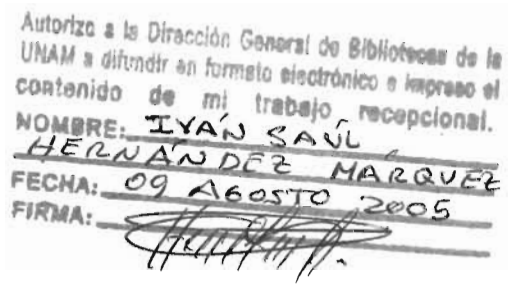 Autorizo a la Dirección General de Bibliotecas de la
UNAM a difundir en formato electrónico e impreso el
contenido de mi trabajo recepcional.
NOMBRE: IVÁN SAÚL
HERNÁNDEZ MÁRQUEZ
FECHA: 09 AGOSTO 2005
FIRMA: